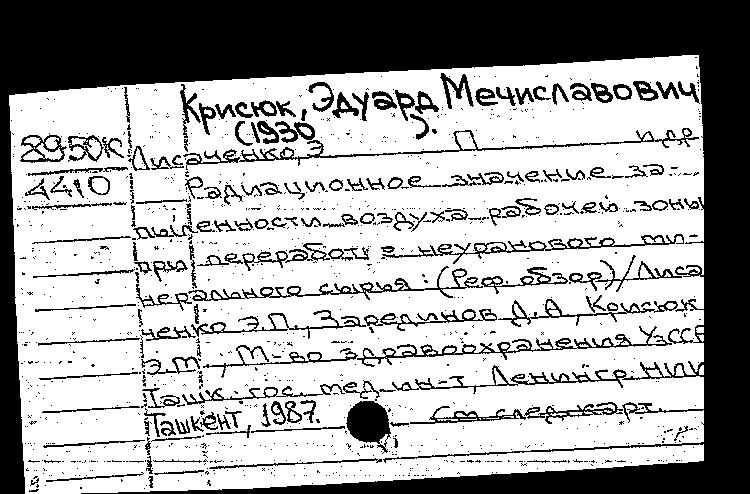 Крисюк, Эдуард Мечиславович
(1930 ).
8950К Лисаченко, Э П и др
4410 Радиационное значение за-
пыленности воздуха рабочей зоны
при переработке неуранового ми-
нерального сырья: (Реф. обзор)/Лиса
ченко Э.П., Зарединов Д.А, Крисюк
Э.М; М-во здравоохранения УзССР
Ташк. гос. мед. ин-т, Ленингр. НИИ
Ташкент, 1987. См след. карт.